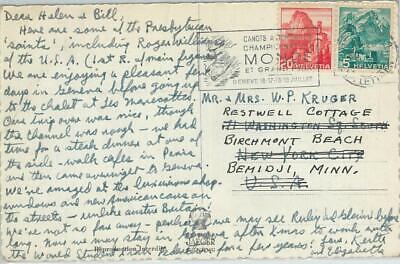 Dear Helen & Bill,
Here are some of the Presbyterian
'saints', including Roger Williams
of the U.S.A. (1st R. of main figures)
We are enjoying a pleasant few
days in Geneva before going up
to the chalet at Les Marecottes.
Our trip over was nice, though
the Channel was rough – we had
time for a steak dinner at one of
the side-walk cafes in Paris
and then came overnight to Geneva.
We're amazed at the luxurious shop
windows and new American cars on
the streets – unlike austere Britain.
We're not so far away – perhaps we may see Ruley & Gloria before
long. Now we may stay in Geneva after Xmas to work with
the World Student Federation for a few years! Love, Keith
and Elizabeth
CANOTS A
CHAMPION
MO
ET GRA
GENEVE 16-17-18 JUILLET
20
HELVETIA
5
HELVETIA
MR. & MRS. W.P. KRUGER
RESTWELL COTTAGE
71 WASHINGTON SQ. SOUTH
BIRCHMONT BEACH
NEW YORK CITY
BEMIDJI, MINN.
U.S.A.
JAEGER
GENEVE